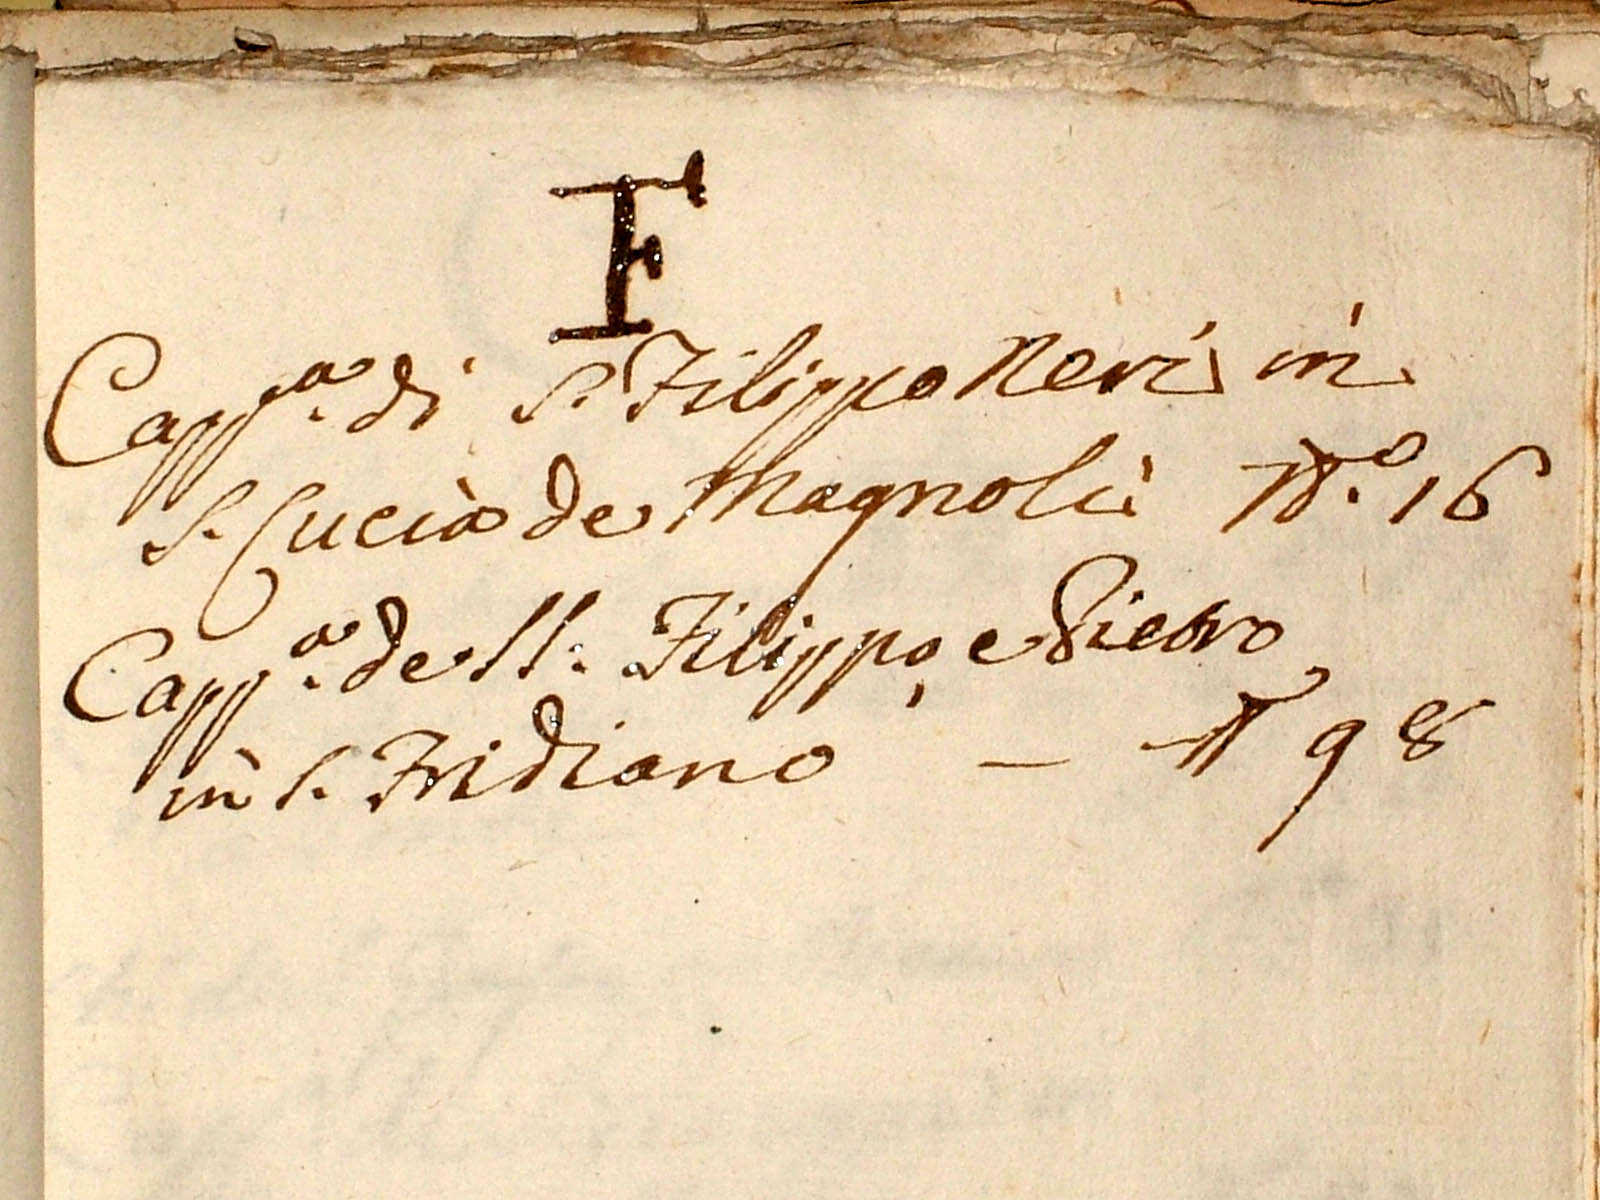 F
Capp.a di S. Filippo Neri in
S. Lucia de Magnoli N.o 16
Capp.a de SS. Filippo, e Pietro
in S. Fridiano — N 98